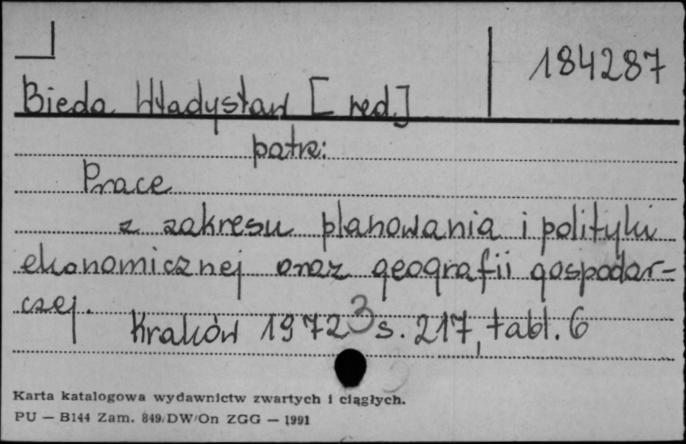 184287
Bieda Władysław [red.]
patrz:
Prace
z zakresu planowania i polityki
ekonomicznej oraz geografii gospodar-
czej.
Kraków 1972 3 s. 217, tabl. 6
Karta katalogowa wydawnictw zwartych i ciągłych.
PU — B144 Zam. 849/DW/On ZGG — 1991